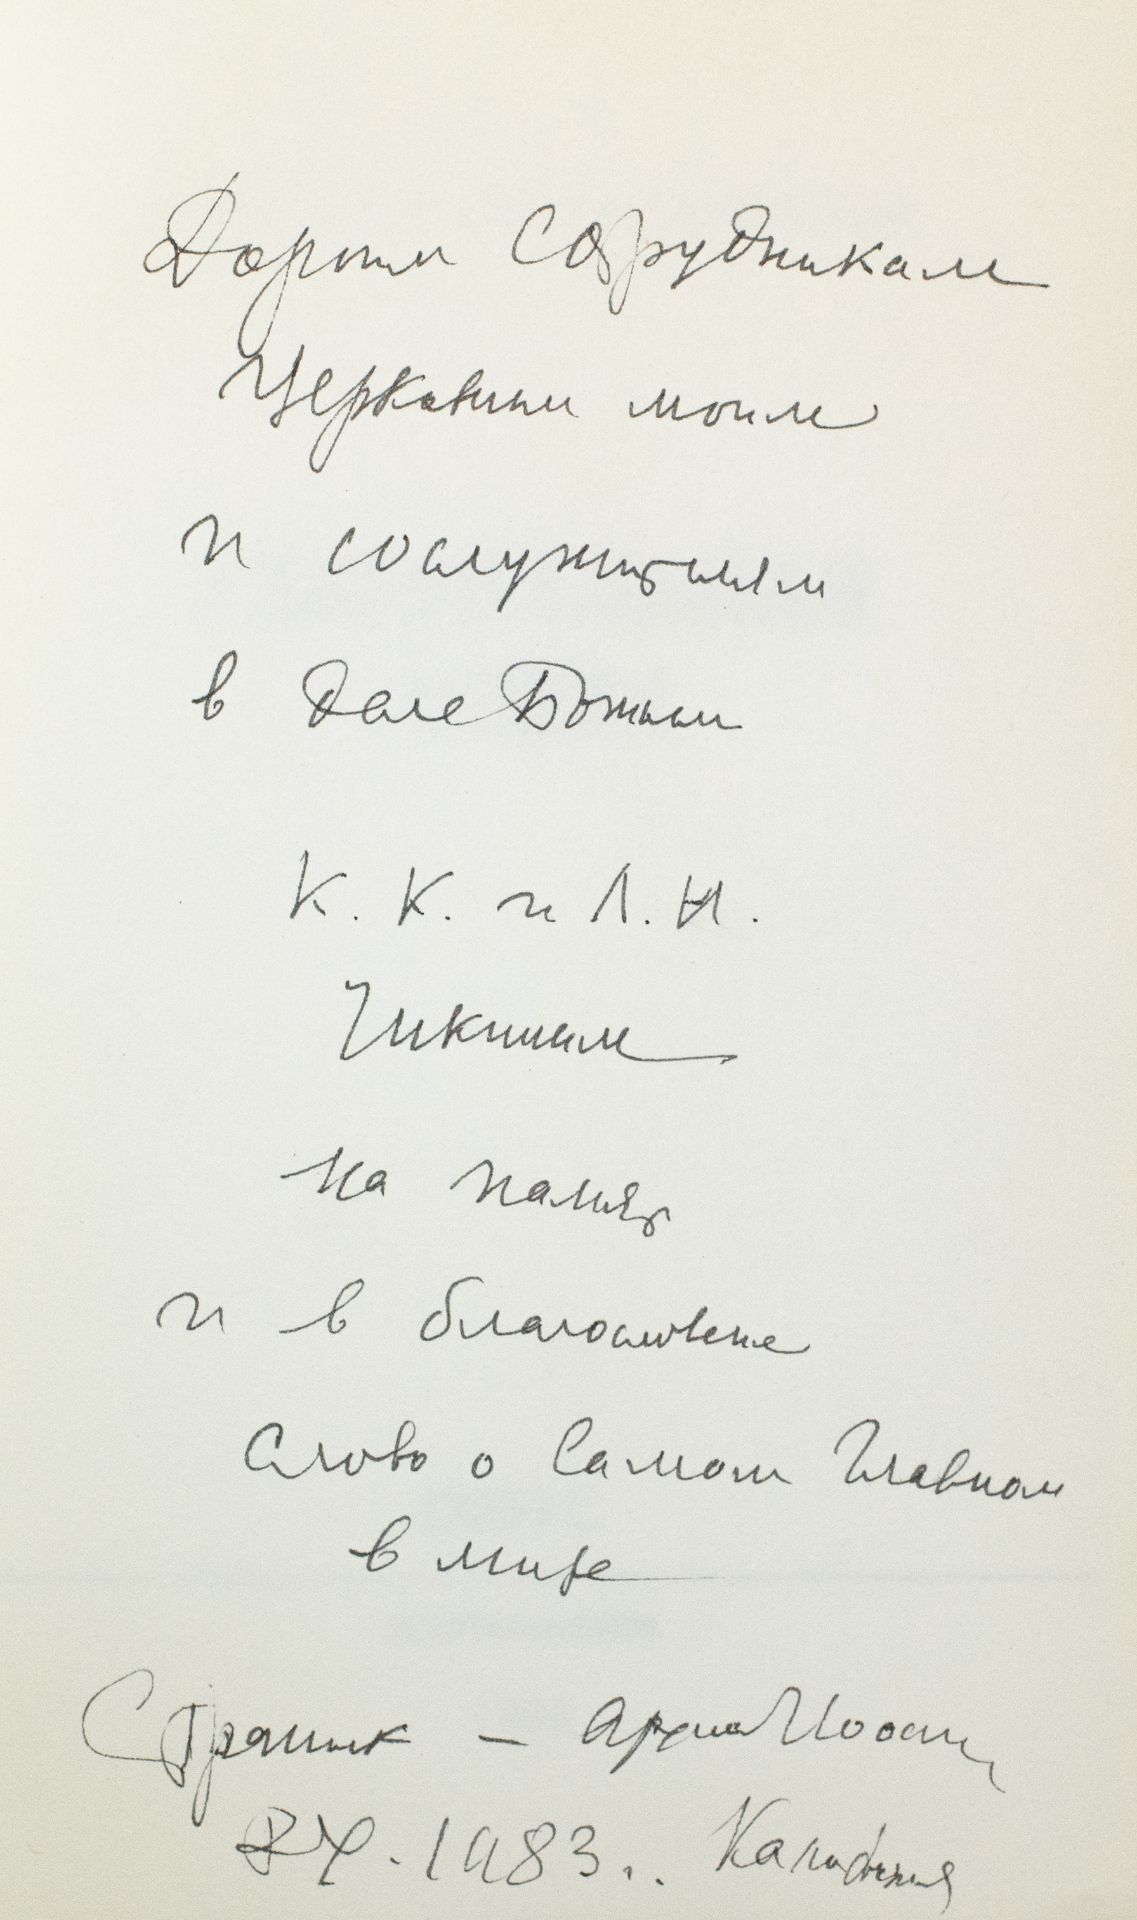 Дорогим Сотрудникам
Церковным моим
и сослужителям
в деле Божьем
К. К. и Л. Н.
Чикиным
на память
и в благословение
Слово о Самом Главном
в мире
Странник – архиеп Иоанн
1983. Калифорния